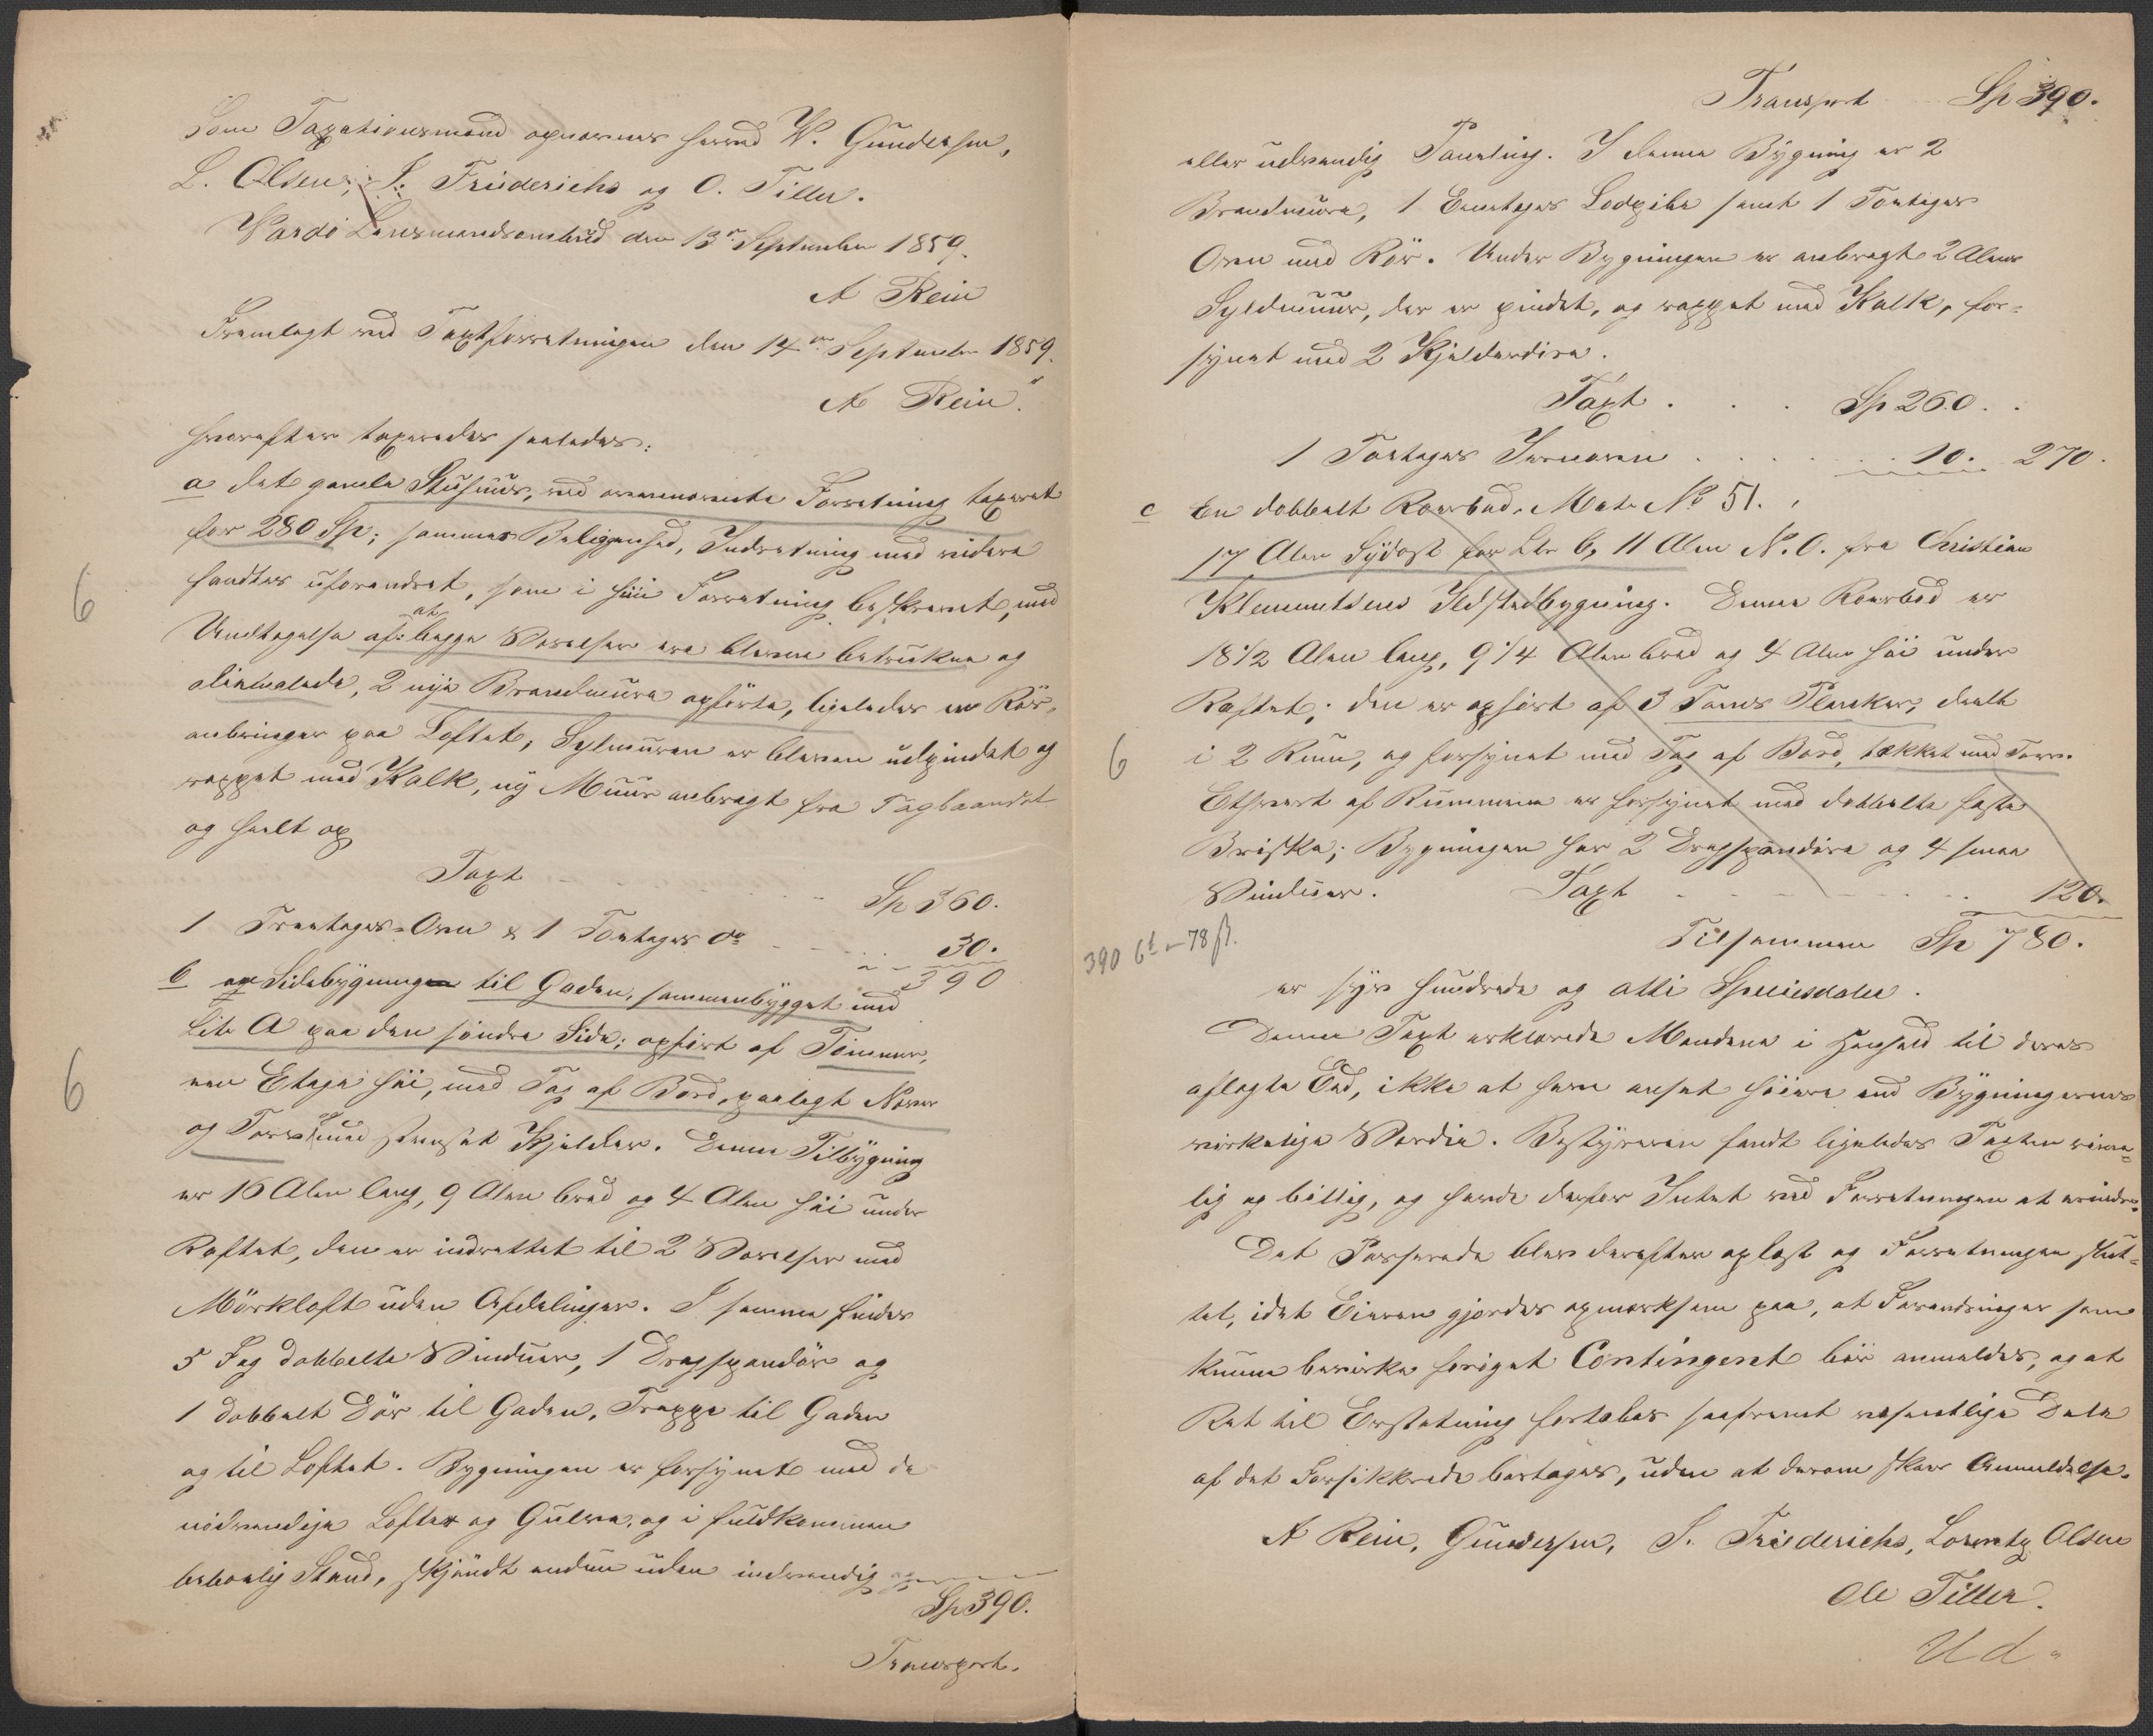 Som Taxationsmænd opnævnes herved W. Gundersen,
L. Olsen, S. Friederichs og O. Tiller.
Wardö Lensmandsombud den 13de September 1859.
A Rein
Fremlagt ved Taxtforretningen den 14de September 1859.
A Rein."
hvorefter taxeredes saaledes:
a det gamle Stuehuus, ved ovennævnte Forretning taxeret
for 280 Sp; sammes Beliggenhed, Indretning med videre
fandtes uforandret, som i hiin Forretning beskrevet, med
Undtagelse af: at begge Værelser ere blevne betrukne og
oliemalede, 2 nye Brandmure opförte, ligeledes en Rör-
anbringer paa Loftet; Sylmuren er bleven udpindet og
rappet med Kalk, ny Muur anbragt fra Tagbaandet
og heelt op
Taxt Sp 360.
1 Treetages-Ovn & 1 Toetages do 30.
390
b en Sidebygning til Gaden, sammenbygget med
Litr A paa den söndre Side; opfört af Tömmer,
een Etage höi, med Tag af Bord, paalagt Næver
og Torv, med steensat Kjelder. Denne Tilbygning
er 16 Alen lang, 9 Alen bred og 4 Alen höi under
Raftet, den er indrettet til 2 Værelser med
Mörkloft uden Afdelinger. I samme findes
5 Fag dobbelte Vinduer, 1 Dragspandör og
1 dobbelt Dör til Gaden, Trappe til Gaden
og til Loftet. Bygningen er forsynet med de
nödvendige Lofter og Gulve, og i fuldkommen
beboelig Stand, skjöndt endnu uden indvendig
Sp 390.
Transport.
6
6
Transport Sp 390.
eller udvendig Paneling. I denne Bygning er 2
Brandmure, 1 Eenetages Lodpibe samt 1 Toetages
Ovn med Rör. Under Bygningen er anbragt 2 Alens
Syldmuur, der er pindet, og rappet med Kalk, for-
synet med 2 Kjelderdöre.
Taxt . . . Sp 260. .
1 Toetages Jernovn . . . 10. 270.
c En dobbelt Roerbod. Matr No 51.
17 Alen Sydost for Litr b, 11 Alen N.O. fra Christian
Klemmetsens Ildstedbygning. Denne Roerbod er
18 1/2 Alen lang, 9 1/4 Alen bred og 4 Alen höi under
Raftet; den er opfört af 3 Toms Planker, deelt
i 2 Rum, og forsynet med Tag af Bord, tækket med Torv.
Ethvert af Rummene er forsynet med dobbelte faste
Briske; Bygningen har 2 Dragspandöre og 4 smaa
Vinduer. Taxt 120.
6
Tilsammen Sp 780.
390 6 t - 78 ß.
er syv hundrede og otti Speciesdaler.
Denne Taxt erklærede Mændene i Henhold til deres
aflagte Eed, ikke at have ansat höiere end Bygningernes
virkelige Værdie. Bestyreren fandt ligeledes Taxten rime-
lig og billig, og havde derfor Intet ved Forretningen at erindre.
Det Passerede blev derefter oplæst og Forretningen slut-
tet, idet Eieren gjordes opmærksom paa, at Forandringer som
kunne bevirke foröget Contingent bör anmeldes, og at
Ret til Erstatning fortabes saafremt væsentlige Dele
af det Forsikkrede bortages, uden at derom skeer Anmeldelse.
A Rein, Gundersen, S. Friederichs, Lorentz Olsen
Ole Tiller.
Ud-